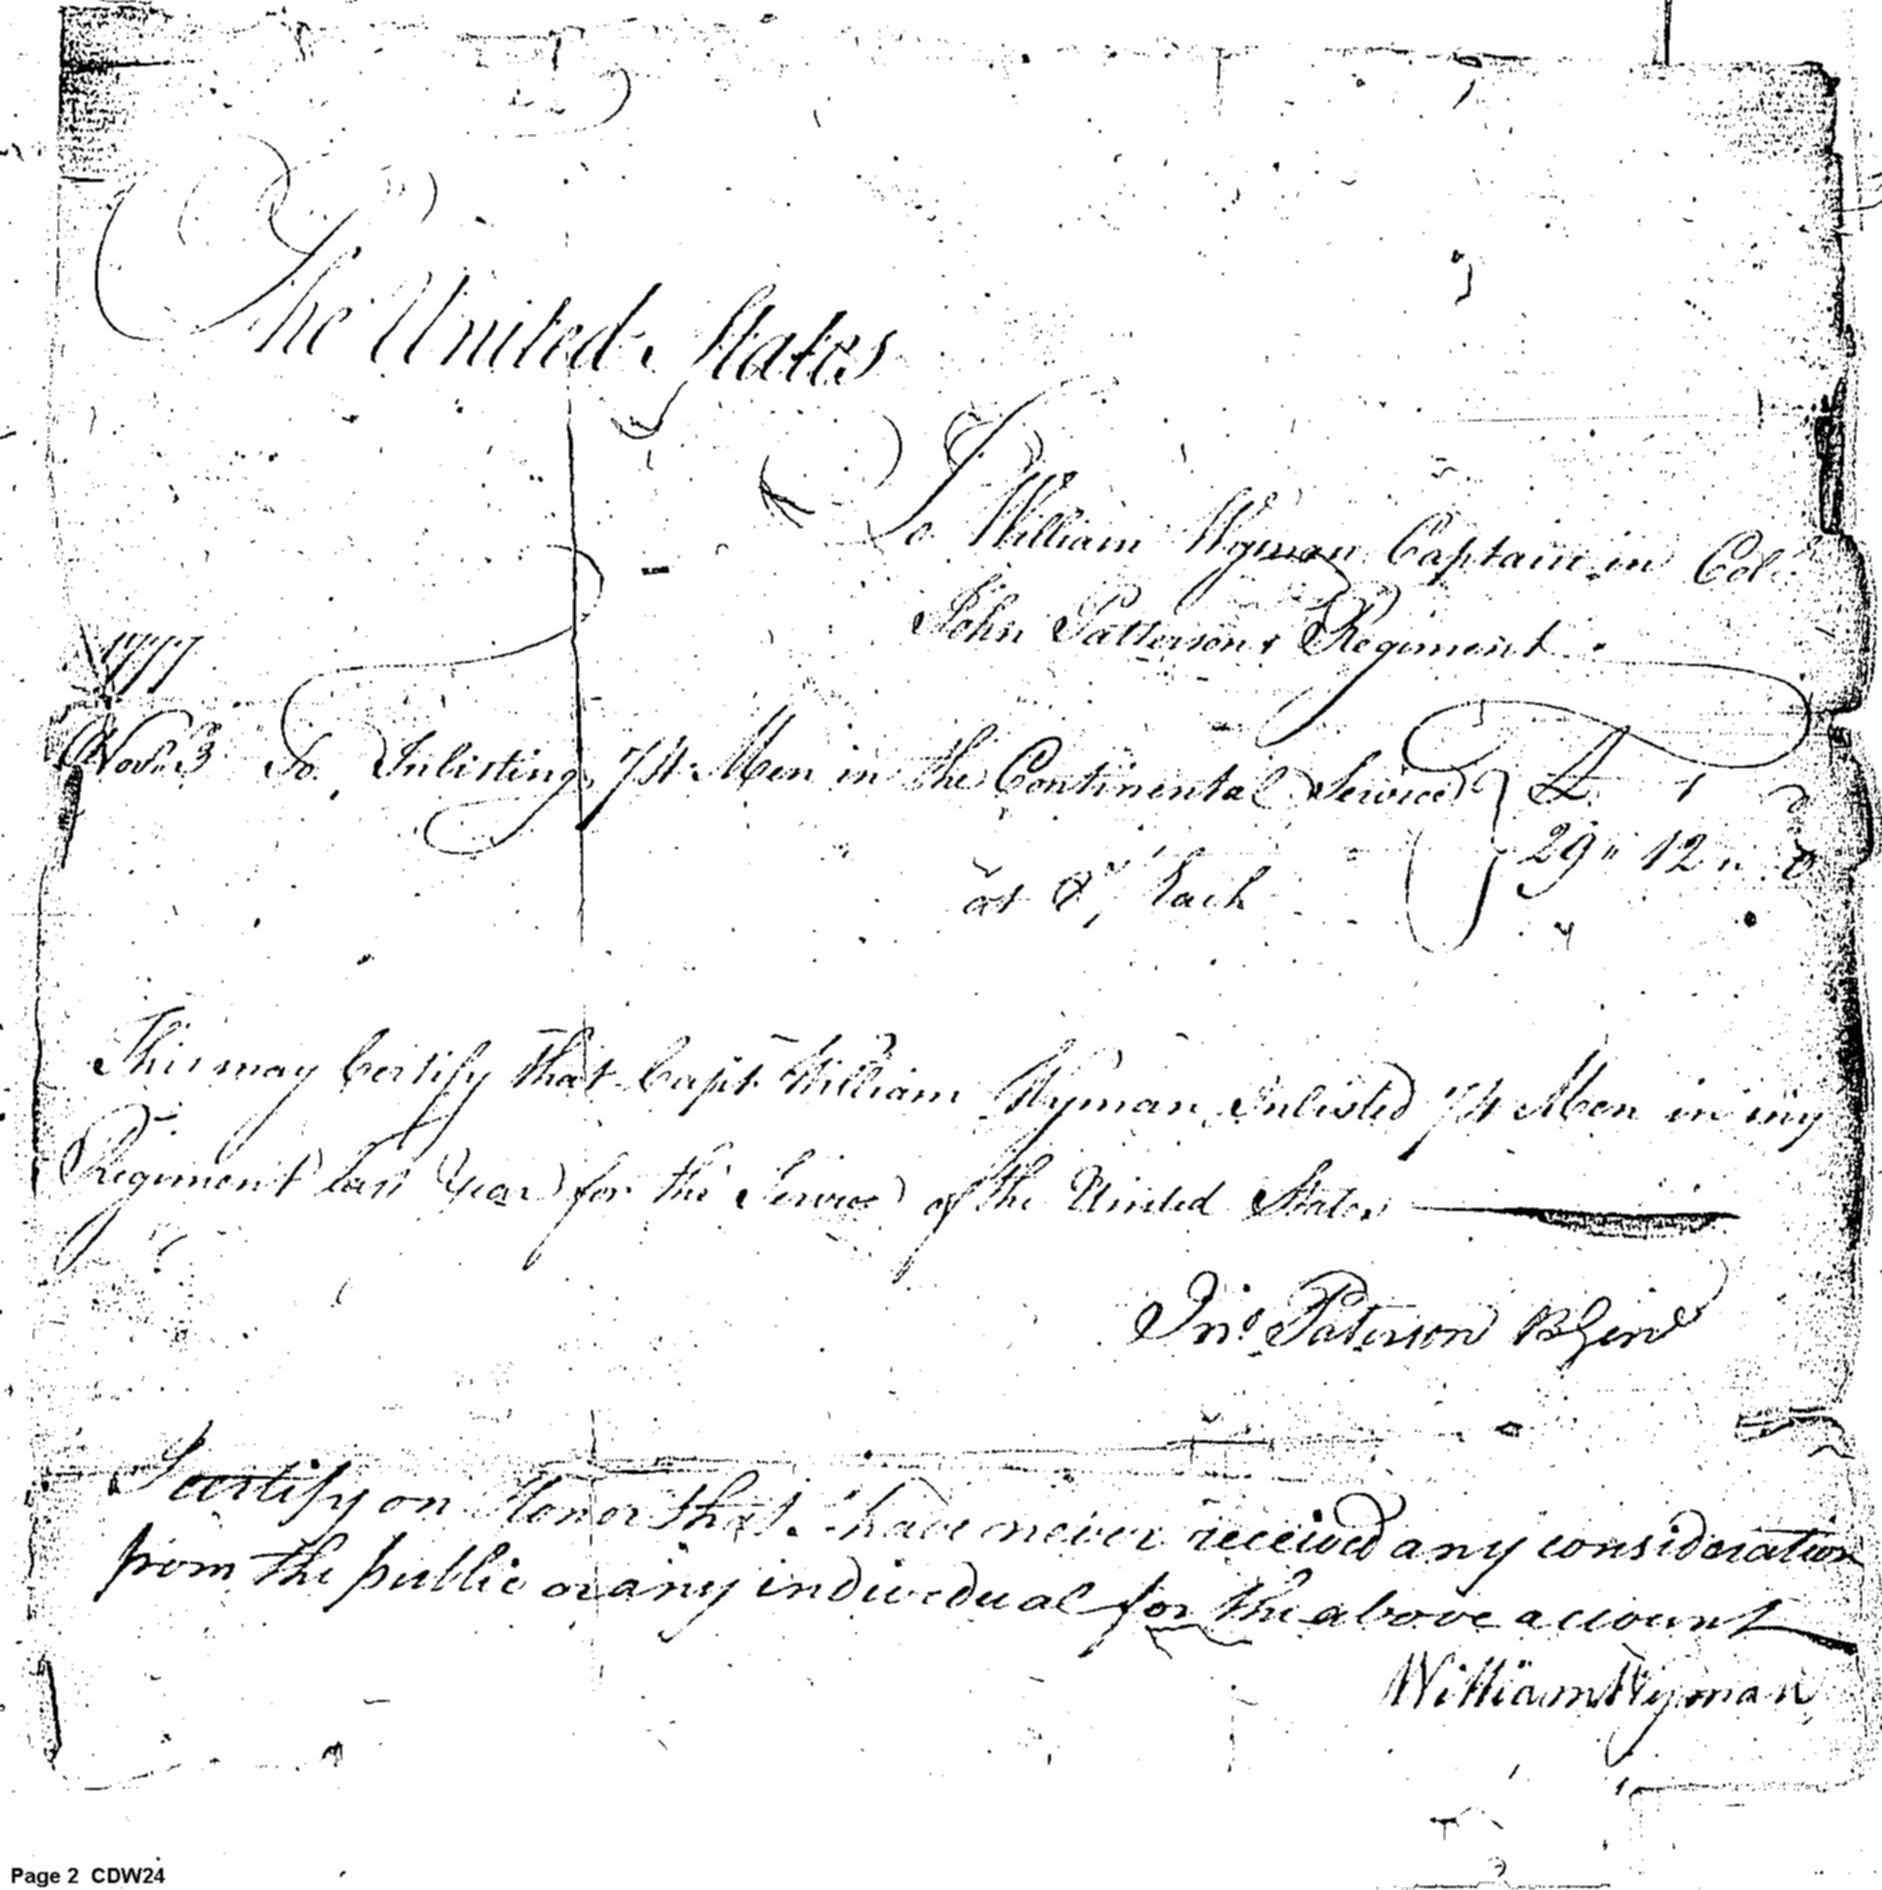 The United States
To William Wyman Captain in Col.
John Pattersons Regiment
1777
Novr. 3 To Inlisting 74 Men in the Continental Service £
at 8/ Each 29 " 12 " 0
This may Certify that Capt William Wyman Inlisted 74 Men in my
Regiment last Year for the Service of the United States
Jno. Paterson B Genl
I certify on Honor that I have never received any consideration
from the public or any individual for the above account
William Wyman
Page 2 CDW24